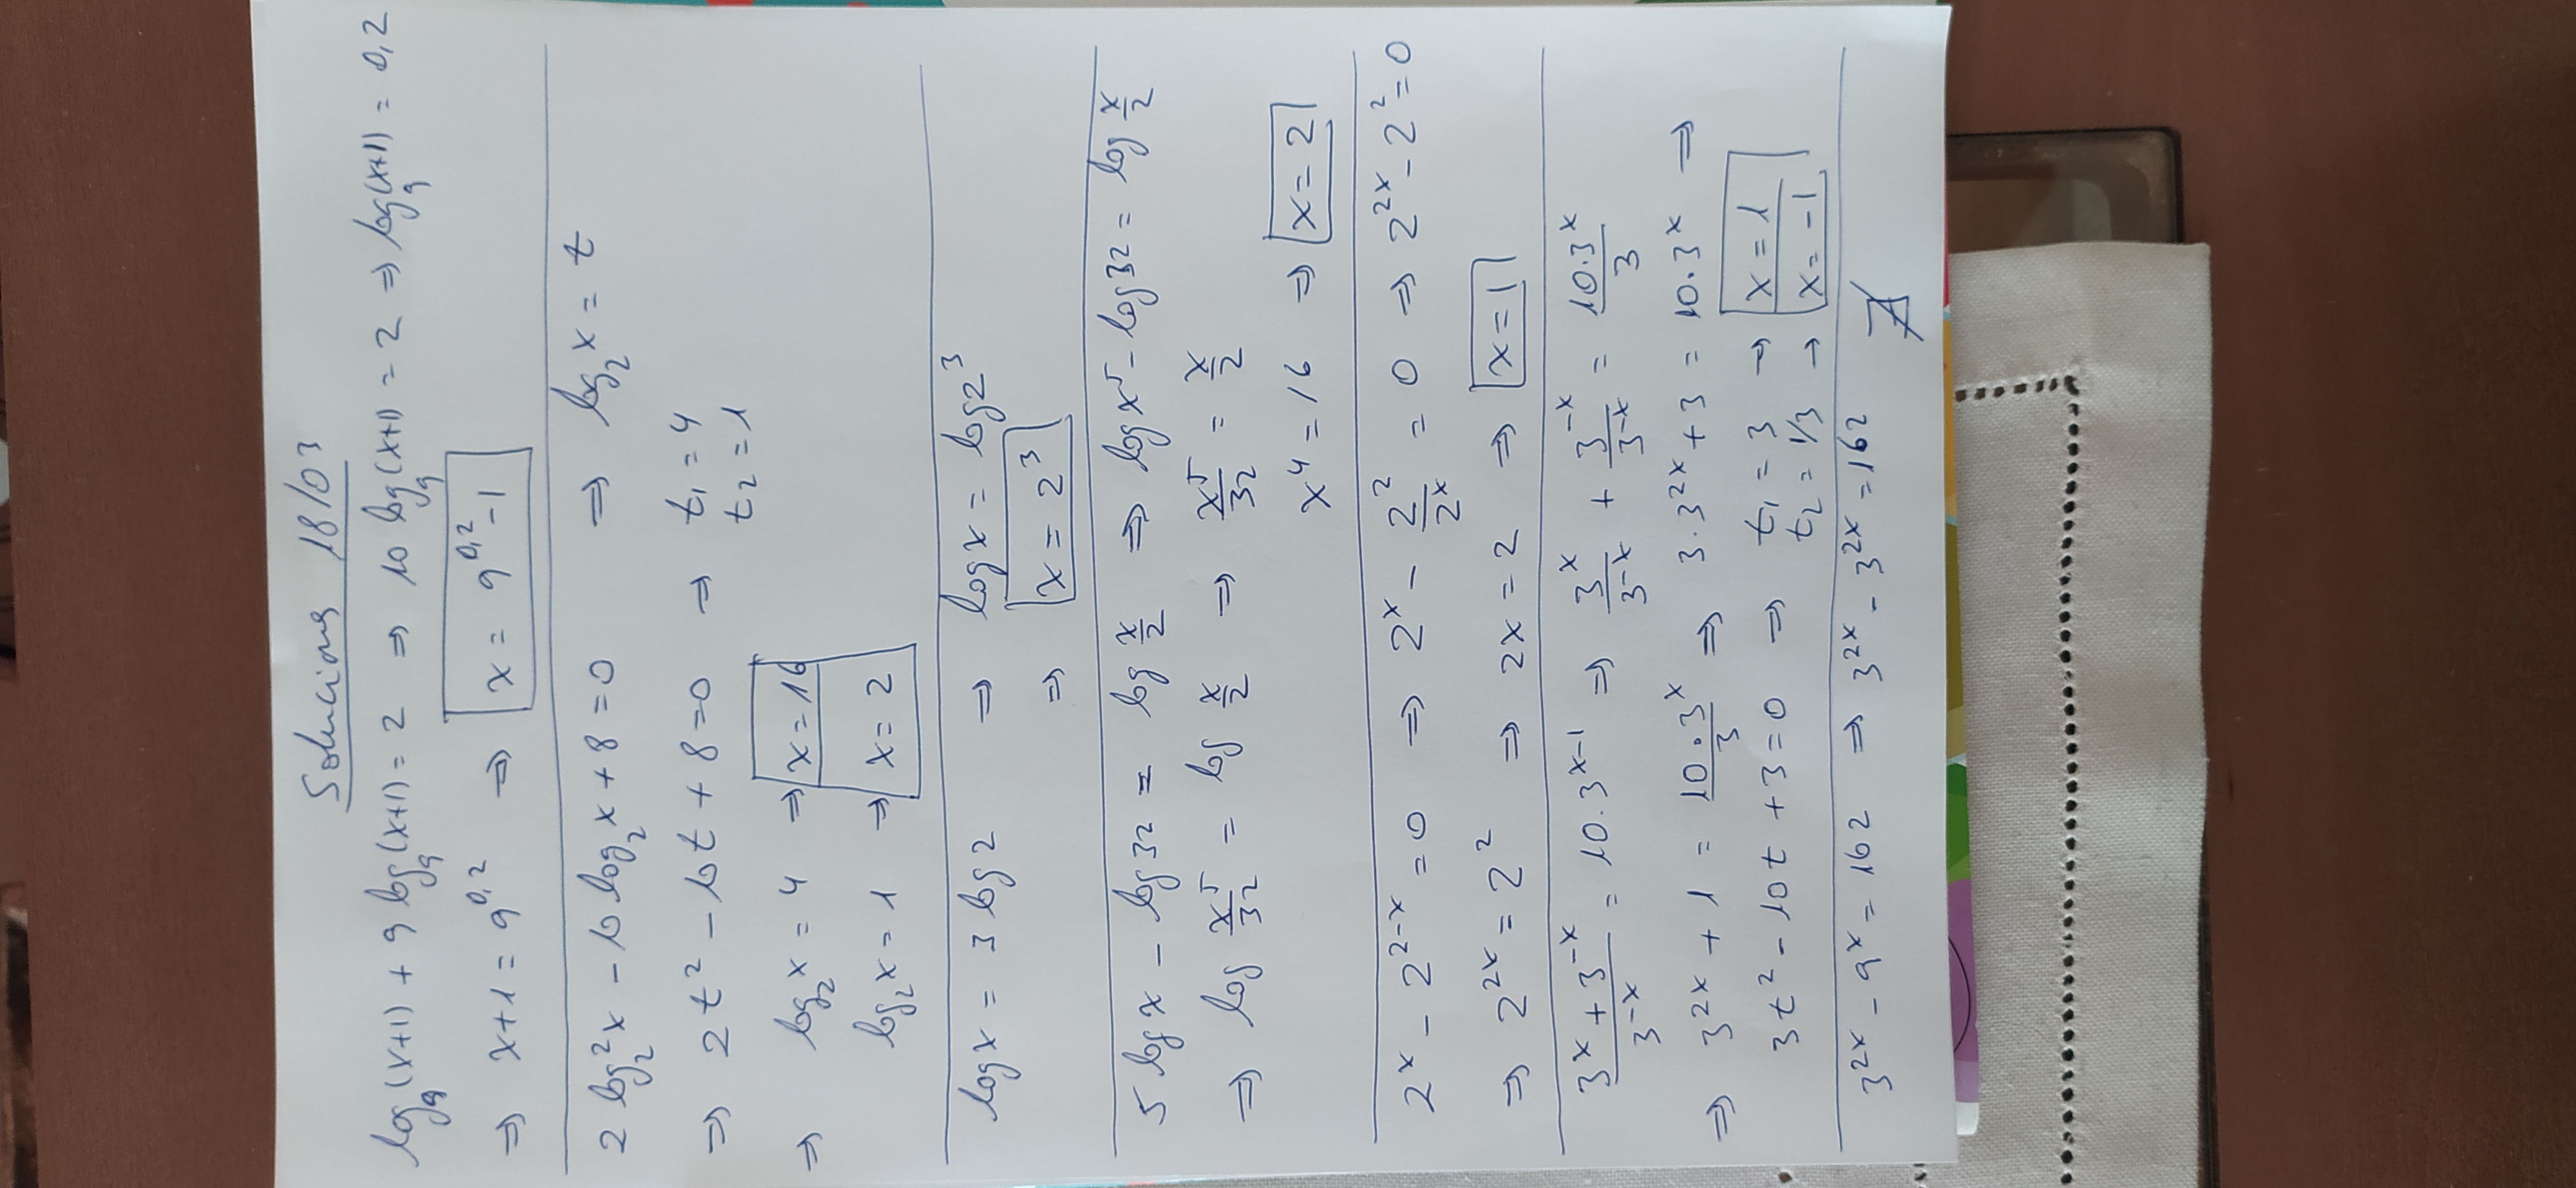 Soluciones 18/03
log₉(x+1) + 9 log₉(x+1) = 2 ⇒ 10 log₉(x+1) = 2 ⇒ log₉(x+1) = 0,2
⇒ x+1 = 9^0,2 ⇒ x = 9^0,2 - 1
2 log₂²x - 10 log₂x + 8 = 0 ⇒ log₂x = t
⇒ 2t² - 10t + 8 = 0 ⇒ t₁ = 4
t₂ = 1
⇒ log₂x = 4 ⇒ x = 16
log₂x = 1 ⇒ x = 2
logx = 3 log2 ⇒ logx = log2³
⇒ x = 2³
5 logx - log32 = log x/2 ⇒ logx⁵ - log32 = log x/2
⇒ log x⁵/32 = log x/2 ⇒ x⁵/32 = x/2
x⁴ = 16 ⇒ x = 2
2^x - 2^(2-x) = 0 ⇒ 2^x - 2²/2^x = 0 ⇒ 2^2x - 2² = 0
⇒ 2^2x = 2² ⇒ 2x = 2 ⇒ x = 1
(3^x + 3^-x)/3^-x = 10.3^(x-1) ⇒ 3^x/3^-x + 3^-x/3^-x = 10.3^x/3
⇒ 3^2x + 1 = 10.3^x/3 ⇒ 3.3^2x + 3 = 10.3^x ⇒
3t² - 10t + 3 = 0 ⇒ t₁ = 3 → x = 1
t₂ = 1/3 → x = -1
3^2x - 9^x = 162 ⇒ 3^2x - 3^2x = 162 ∄